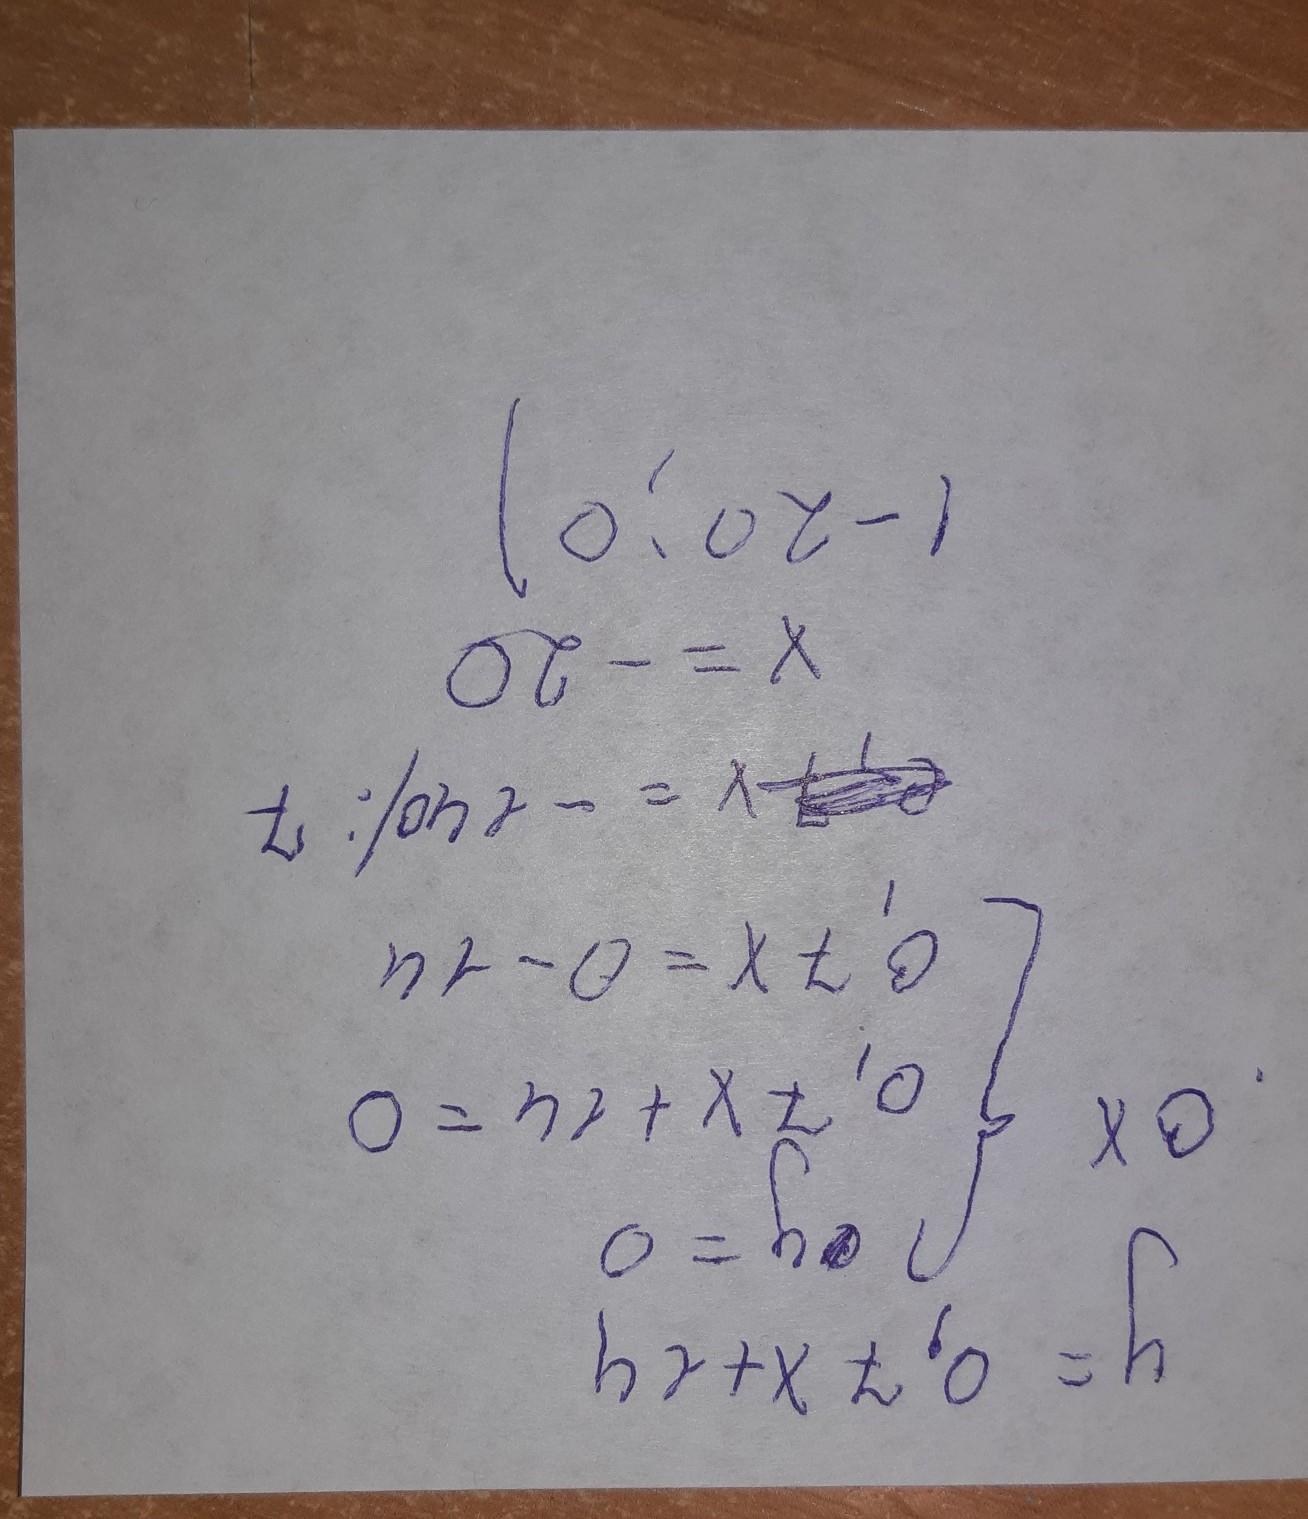 y = 0,7x+14
y = 0
Ox { 0,7x+14=0
0,7x=0-14
x = -140/:7
x = -20
(-20;0)